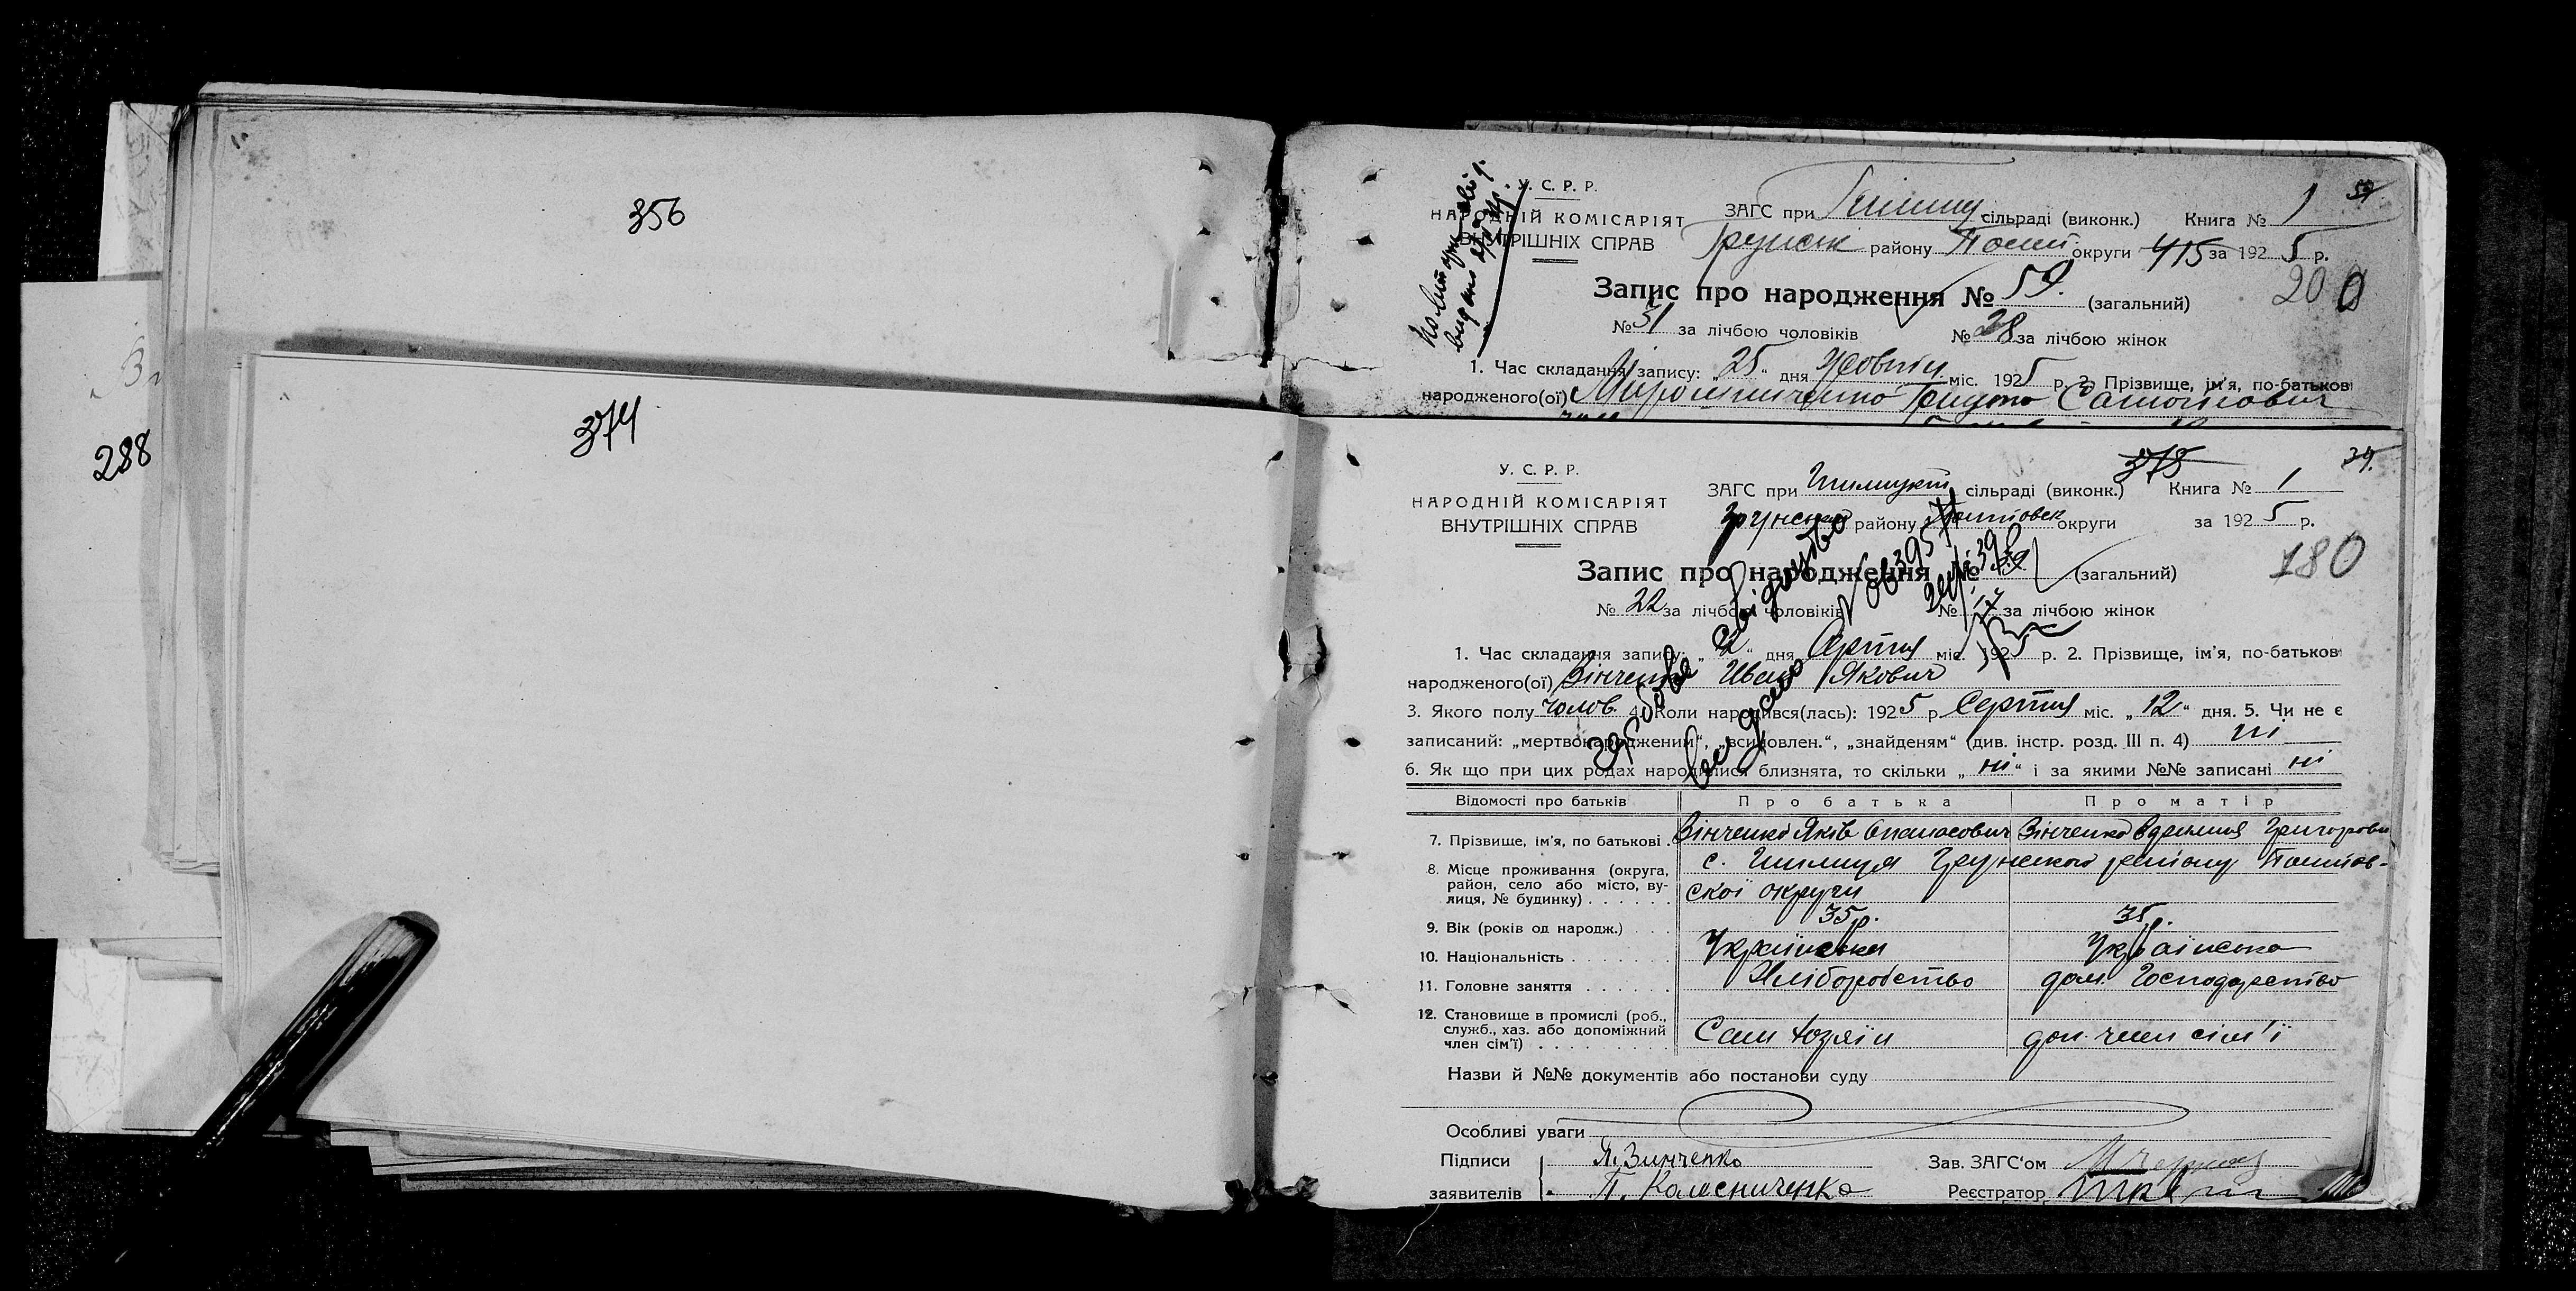 356
374
288
У. С. Р. Р.
НАРОДНІЙ КОМІСАРІЯТ
ВНУТРІШНІХ СПРАВ
ЗАГС при сільраді (виконк.) Книга № 1
Грунськ району Полт округи 415 за 1925 р.
Запис про народження № 59. (загальний)
200
№ 31 за лічбою чоловіків № 28 за лічбою жінок
1. Час складання запису: „25“ дня Жовтн міс. 1925 р. 2. Прізвище, ім'я, по-батькові
народженого(ої) Мирошниченко Грицько
У. С. Р. Р.
НАРОДНІЙ КОМІСАРІЯТ
ВНУТРІШНІХ СПРАВ
375
39.
ЗАГС при сільраді (виконк.) Книга № 1
району округи за 1925 р.
Запис про народження № (загальний)
180
№ 22 за лічбою чоловіків № 17 за лічбою жінок
1. Час складання запису: дня Серпня міс. 1925 р. 2. Прізвище, ім'я, по-батькові
народженого(ої) Зінченко Иван Якович
3. Якого полу чолов. 4. Коли народився(лась): 1925 р. Серпня міс. „12“ дня. 5. Чи не є
записаний: „мертвонароджений“, „всиновлен.“, „знайденям“ (див. інстр. розд. III п. 4) ні
6. Як що при цих родах народилися близнята, то скільки „ні“ і за якими №№ записані ні
видано
Відомості про батьків Про батька Про матір
7. Прізвище, ім'я, по батькові . Зінченко Яків Опанасович Зінченко
8. Місце проживання (округа, район, село або місто, вулиця, № будинку) . . . . . . с. Грунського району Полтов-
ської округи
9. Вік (років од народж.) . . . 35 р. 35 р.
10. Національність . . . . . . . Українська Українська
11. Головне заняття . . . . . . Хліборобство дом. Господарство
12. Становище в промислі (роб., служб., хаз. або допоміжний член сім'ї) . . . . . . . . . Сам хозяїн доп. член сім'ї
Назви й №№ документів або постанови суду
Особливі уваги
Підписи Я. Зинченко Зав. ЗАГС'ом
заявителів П. Колесниченко Реєстратор